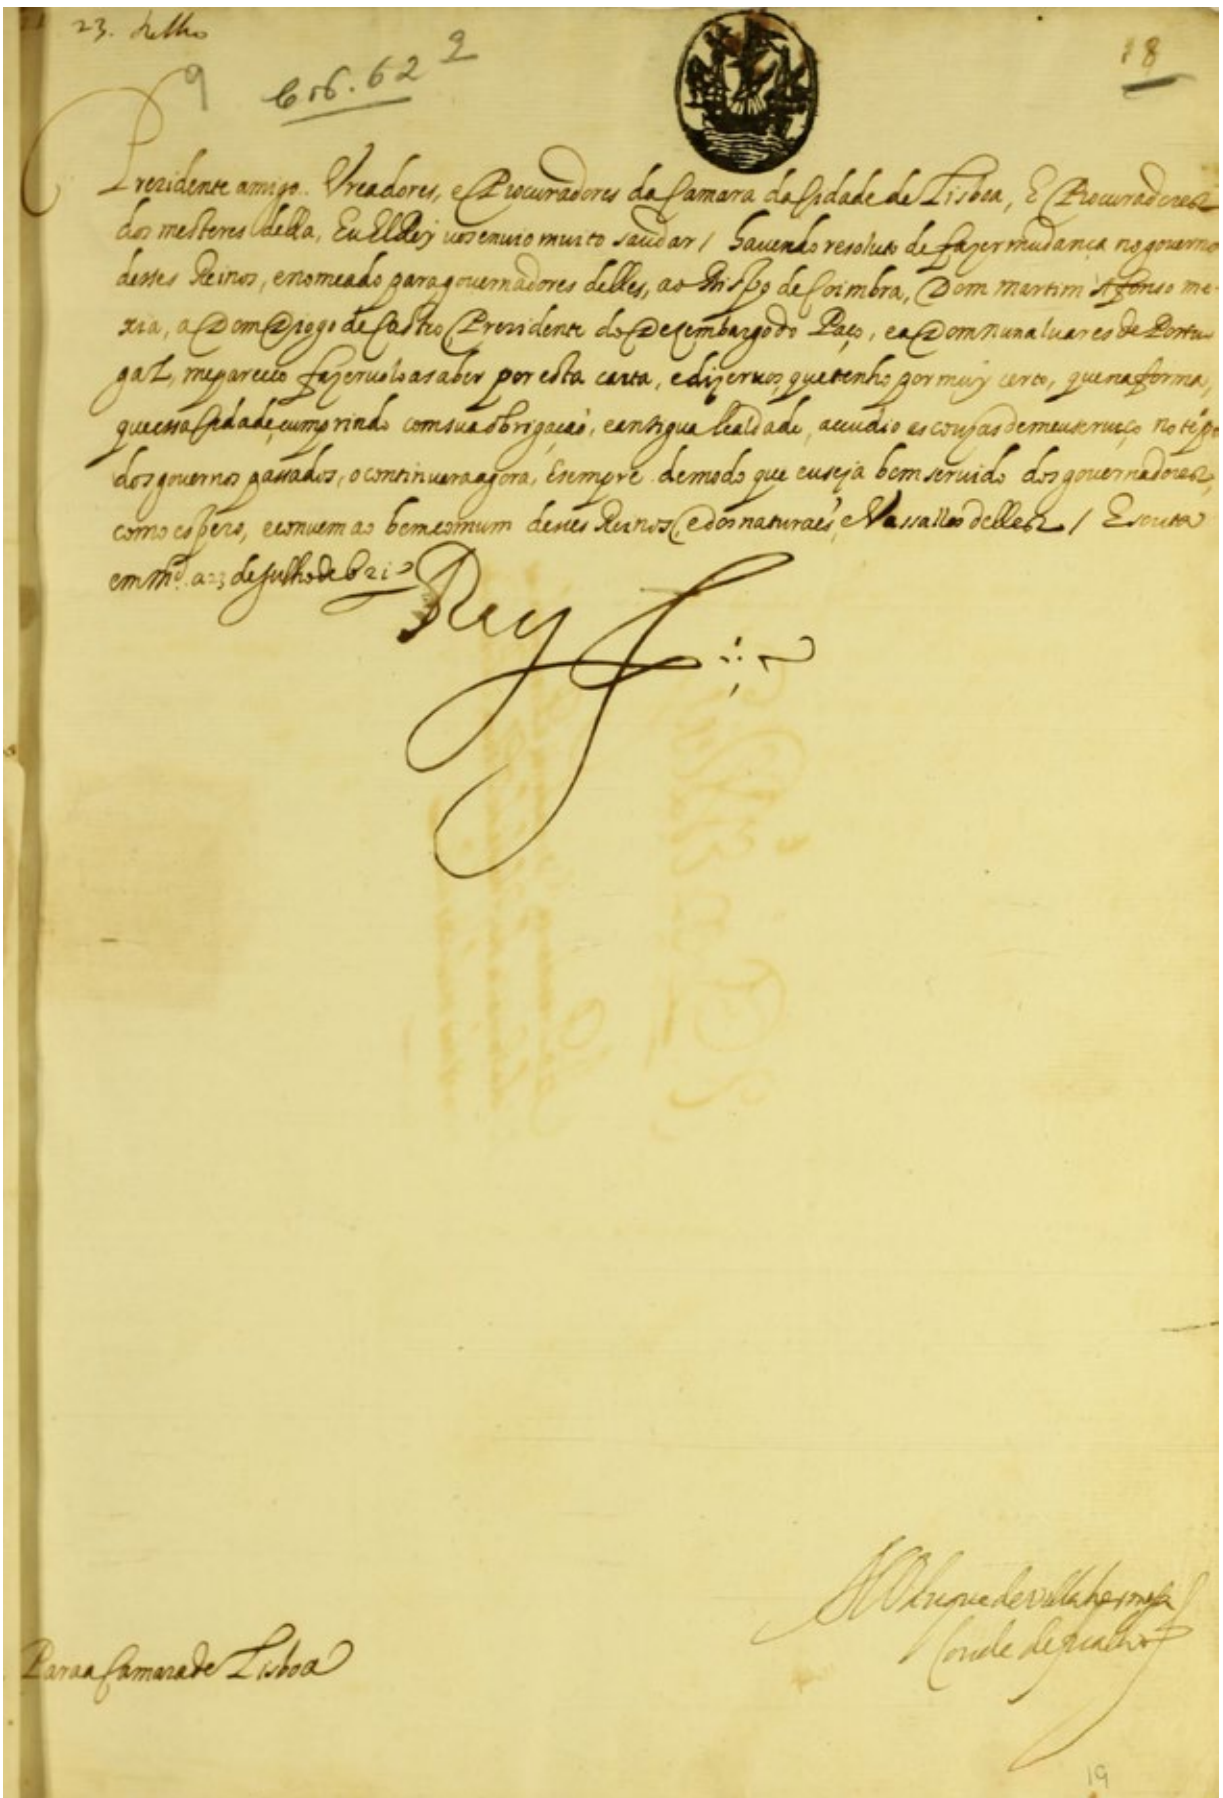 23. Julho
9
Cod. 62 2
18
Prezidente amigo. Vreadores, e Procuradores da Camara da Cidade de Lisboa, E Procuradores
dos mesteres della, Eu ElRey uos enuio muito saudar / Hauendo resoluto de fazer mudança no gouerno
desses Reinos, e nomeado para gouernadores delles, ao Bispo de Coimbra, Dom Martim Afonso me-
xia, a Dom Diogo de Castro, Prezidente do Dezembargo do Paço, e a Dom Nunaluares de Portu-
gal, me pareceo fazeruolo a saber por esta carta, e dizeruos, que tenho por muy certo, que na forma,
que essa Cidade, cumprindo com sua obrigação, e antigua lealdade, accudio as cousas de meu seruiço no tẽpo
dos gouernos passados, o continuera agora, E sempre de modo que eu seja bem seruido dos gouernadores,
como espero, e conuem ao bem comum desses Reinos, e dos naturaes, e Vassallos delles / Escrita
em Md. a 23 de Julho de 621
Rey
Duque de Villahermosa
Conde de ficalho
Para a Camara de Lisboa
19